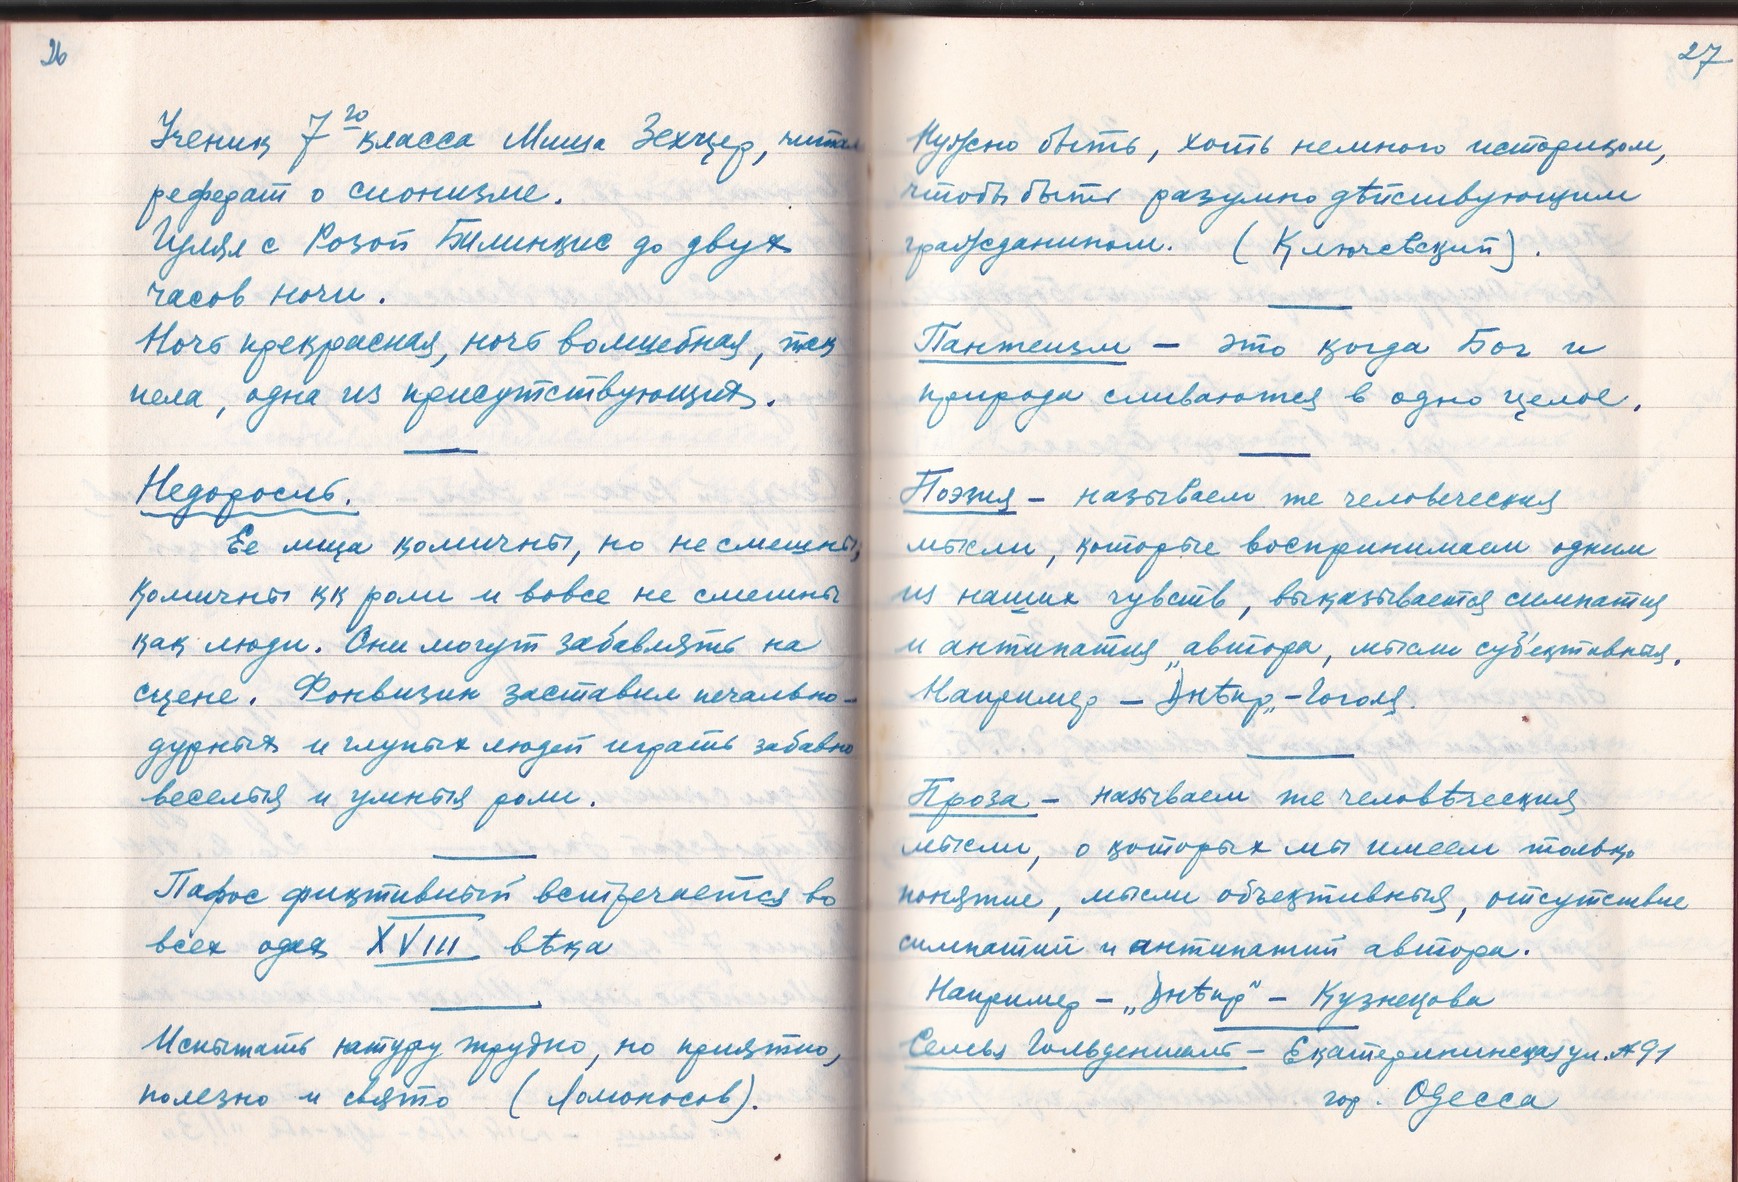 26
Ученик 7го класса Миша Зехцер, читал
реферат о сионизме.
Гулял с Розой Билинкис до двух
часов ночи.
Ночь прекрасная, ночь волшебная, так
пела, одна из присутствующих.
Недоросль.
Ее лица комичны, но не смешны,
комичны кк роли и вовсе не смешны
как люди. Они могут забавлять на
сцене. Фонвизин заставил печально-
дурных и глупых людей играть забавно
веселыя и умныя роли.
Пафос фиктивный встречается во
всех одах XVIII вѣка
Испытать натуру трудно, но приятно,
полезно и свято (Ломоносов).
27
Нужно быть, хоть немного историком,
чтобы быть разумно дѣйствующим
гражданином. (Ключевский).
Пантеизм – это когда Бог и
природа сливаются в одно целое.
Поэзия – называем те человеческия
мысли, которые воспринимаем одним
из наших чувств, высказывается симпатия
и антипатия автора, мысли субъективныя.
Например – „Днѣпр„ – Гоголя.
Проза – называем те человѣческия
мысли, о которых мы имеем только
понятие, мысли объективныя, отсутствие
симпатий и антипатий автора.
Например – „Днѣпр“ – Кузнецова
Семья Гольденшаль – Екатерининская ул. № 91
гор. Одесса